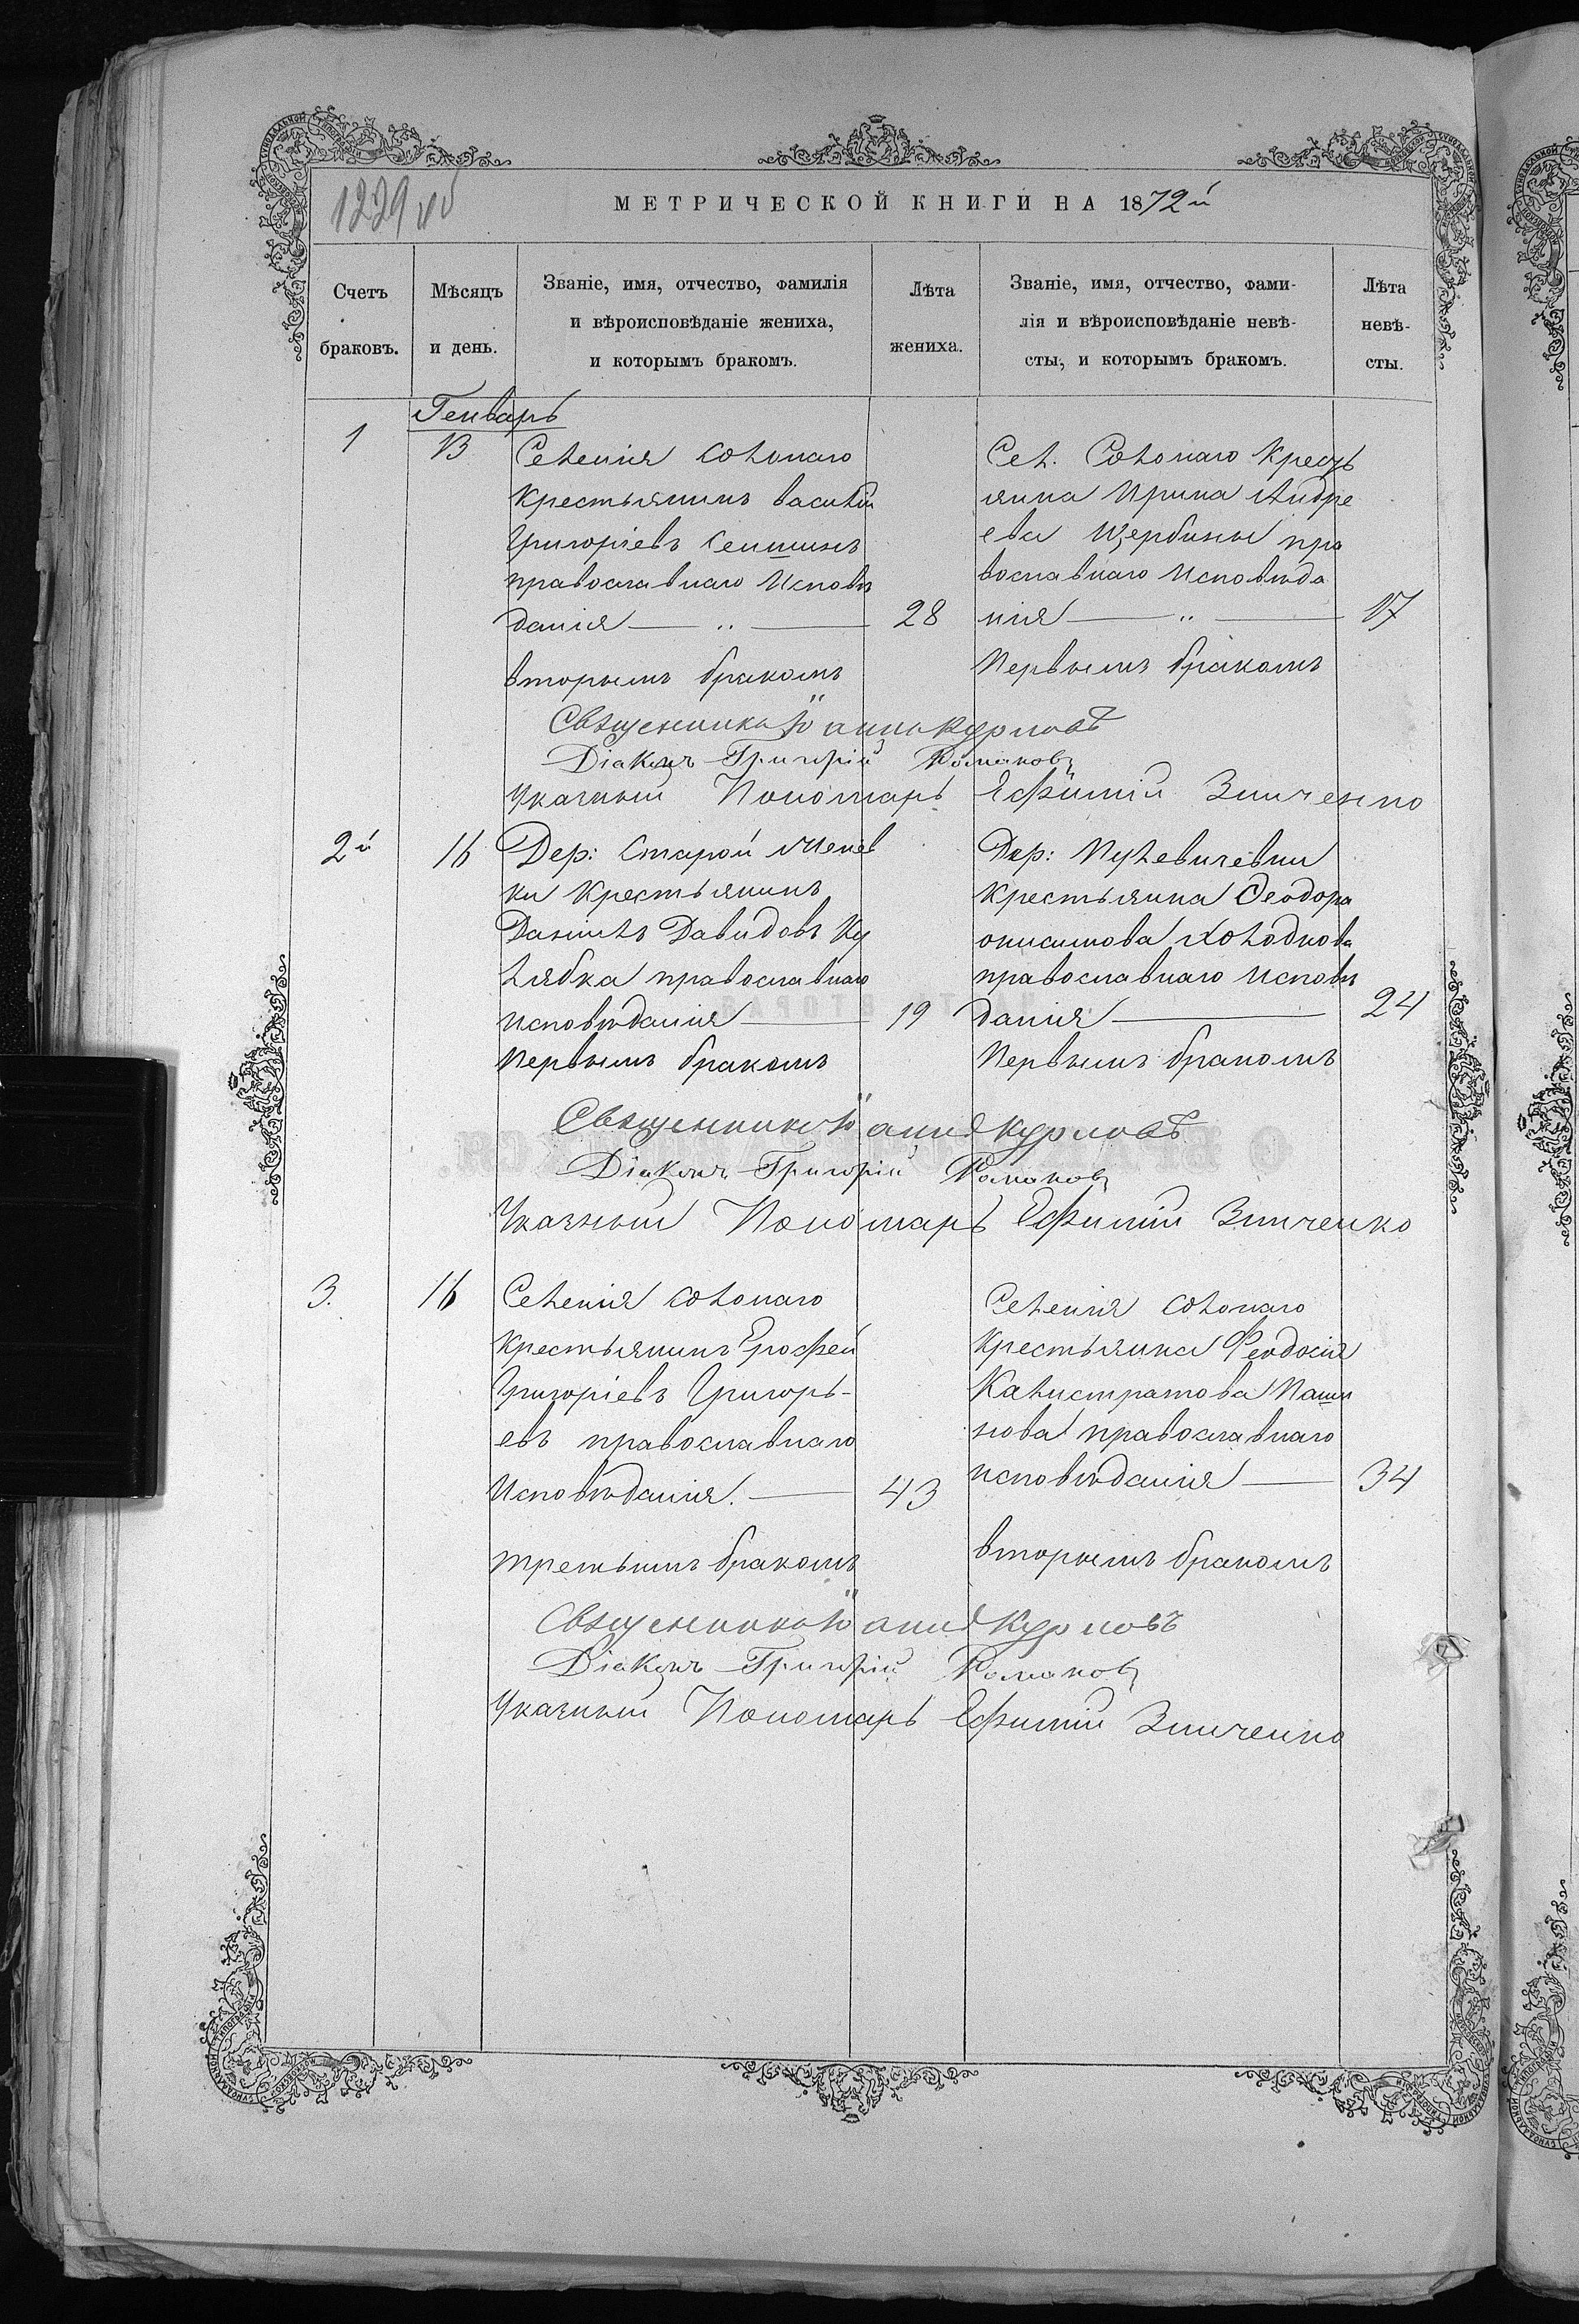 1229 об
МЕТРИЧЕСКОЙ КНИГИ НА 1872й
Счетъ браковъ.
Мѣсяцъ и день.
Званіе, имя, отчество, фамилія
и вѣроисповѣданіе жениха,
и которымъ бракомъ.
Лѣта жениха.
Званіе, имя, отчество, фами-
лія и вѣроисповѣданіе невѣ-
сты, и которымъ бракомъ.
Лѣта невѣ-
сты.
Генварь
1
13
Селенія Солонаго
крестьянинъ Василій
Григоріевъ
православнаго Исповѣ
данія — „ — 28
вторымъ бракомъ
Сел. Солонаго Крестья
янка Ирина Андре
ева Щербины пра
вославнаго Исповѣда
нія — „ — 17
Первымъ бракомъ
Священникъ Іоаннъ Курловъ
Діаконъ Григорій Романовъ
Указный Пономарь Ефимій Зинченко
2й
16
Дер: Старой
ки Крестьянинъ
Даніилъ Давидовъ Ку
лябка православнаго
исповѣданія — 19
Первымъ бракомъ
Дер:
крестьянка Ѳеодора
онисимова Холодкова
православнаго исповѣ
данія — 24
Первымъ бракомъ
Священникъ Іоаннъ Курловъ
Діаконъ Григорій Романовъ
Указный Пономарь Ефимій Зинченко
3.
16
Селенія Солонаго
крестьянинъ Ерофей
Григоріевъ Григорь-
евъ православнаго
Исповѣданія. — 43
третьимъ бракомъ
Селенія Солонаго
крестьянка Феодосія
Калистратова Паши
нова православнаго
исповѣданія — 34
вторымъ бракомъ
Священникъ Іоаннъ Курловъ
Діаконъ Григорій Романовъ
Указный Пономарь Ефимій Зинченко